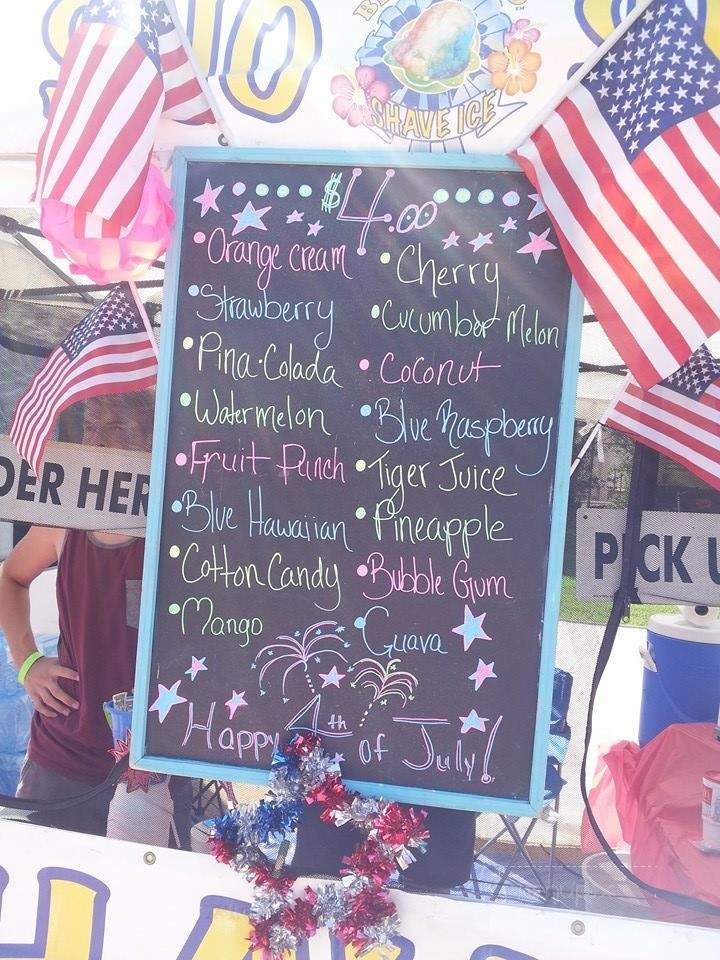 SHAVE ICE
$4.00
• Orange cream
• Strawberry
• Pina-Colada
• Watermelon
• Fruit Punch
• Blue Hawaiian
• Cotton Candy
• Mango
• Cherry
• Cucumber Melon
• Coconut
• Blue Raspberry
• Tiger Juice
• Pineapple
• Bubble Gum
• Guava
Happy 4th of July!
DER HER
PICK U